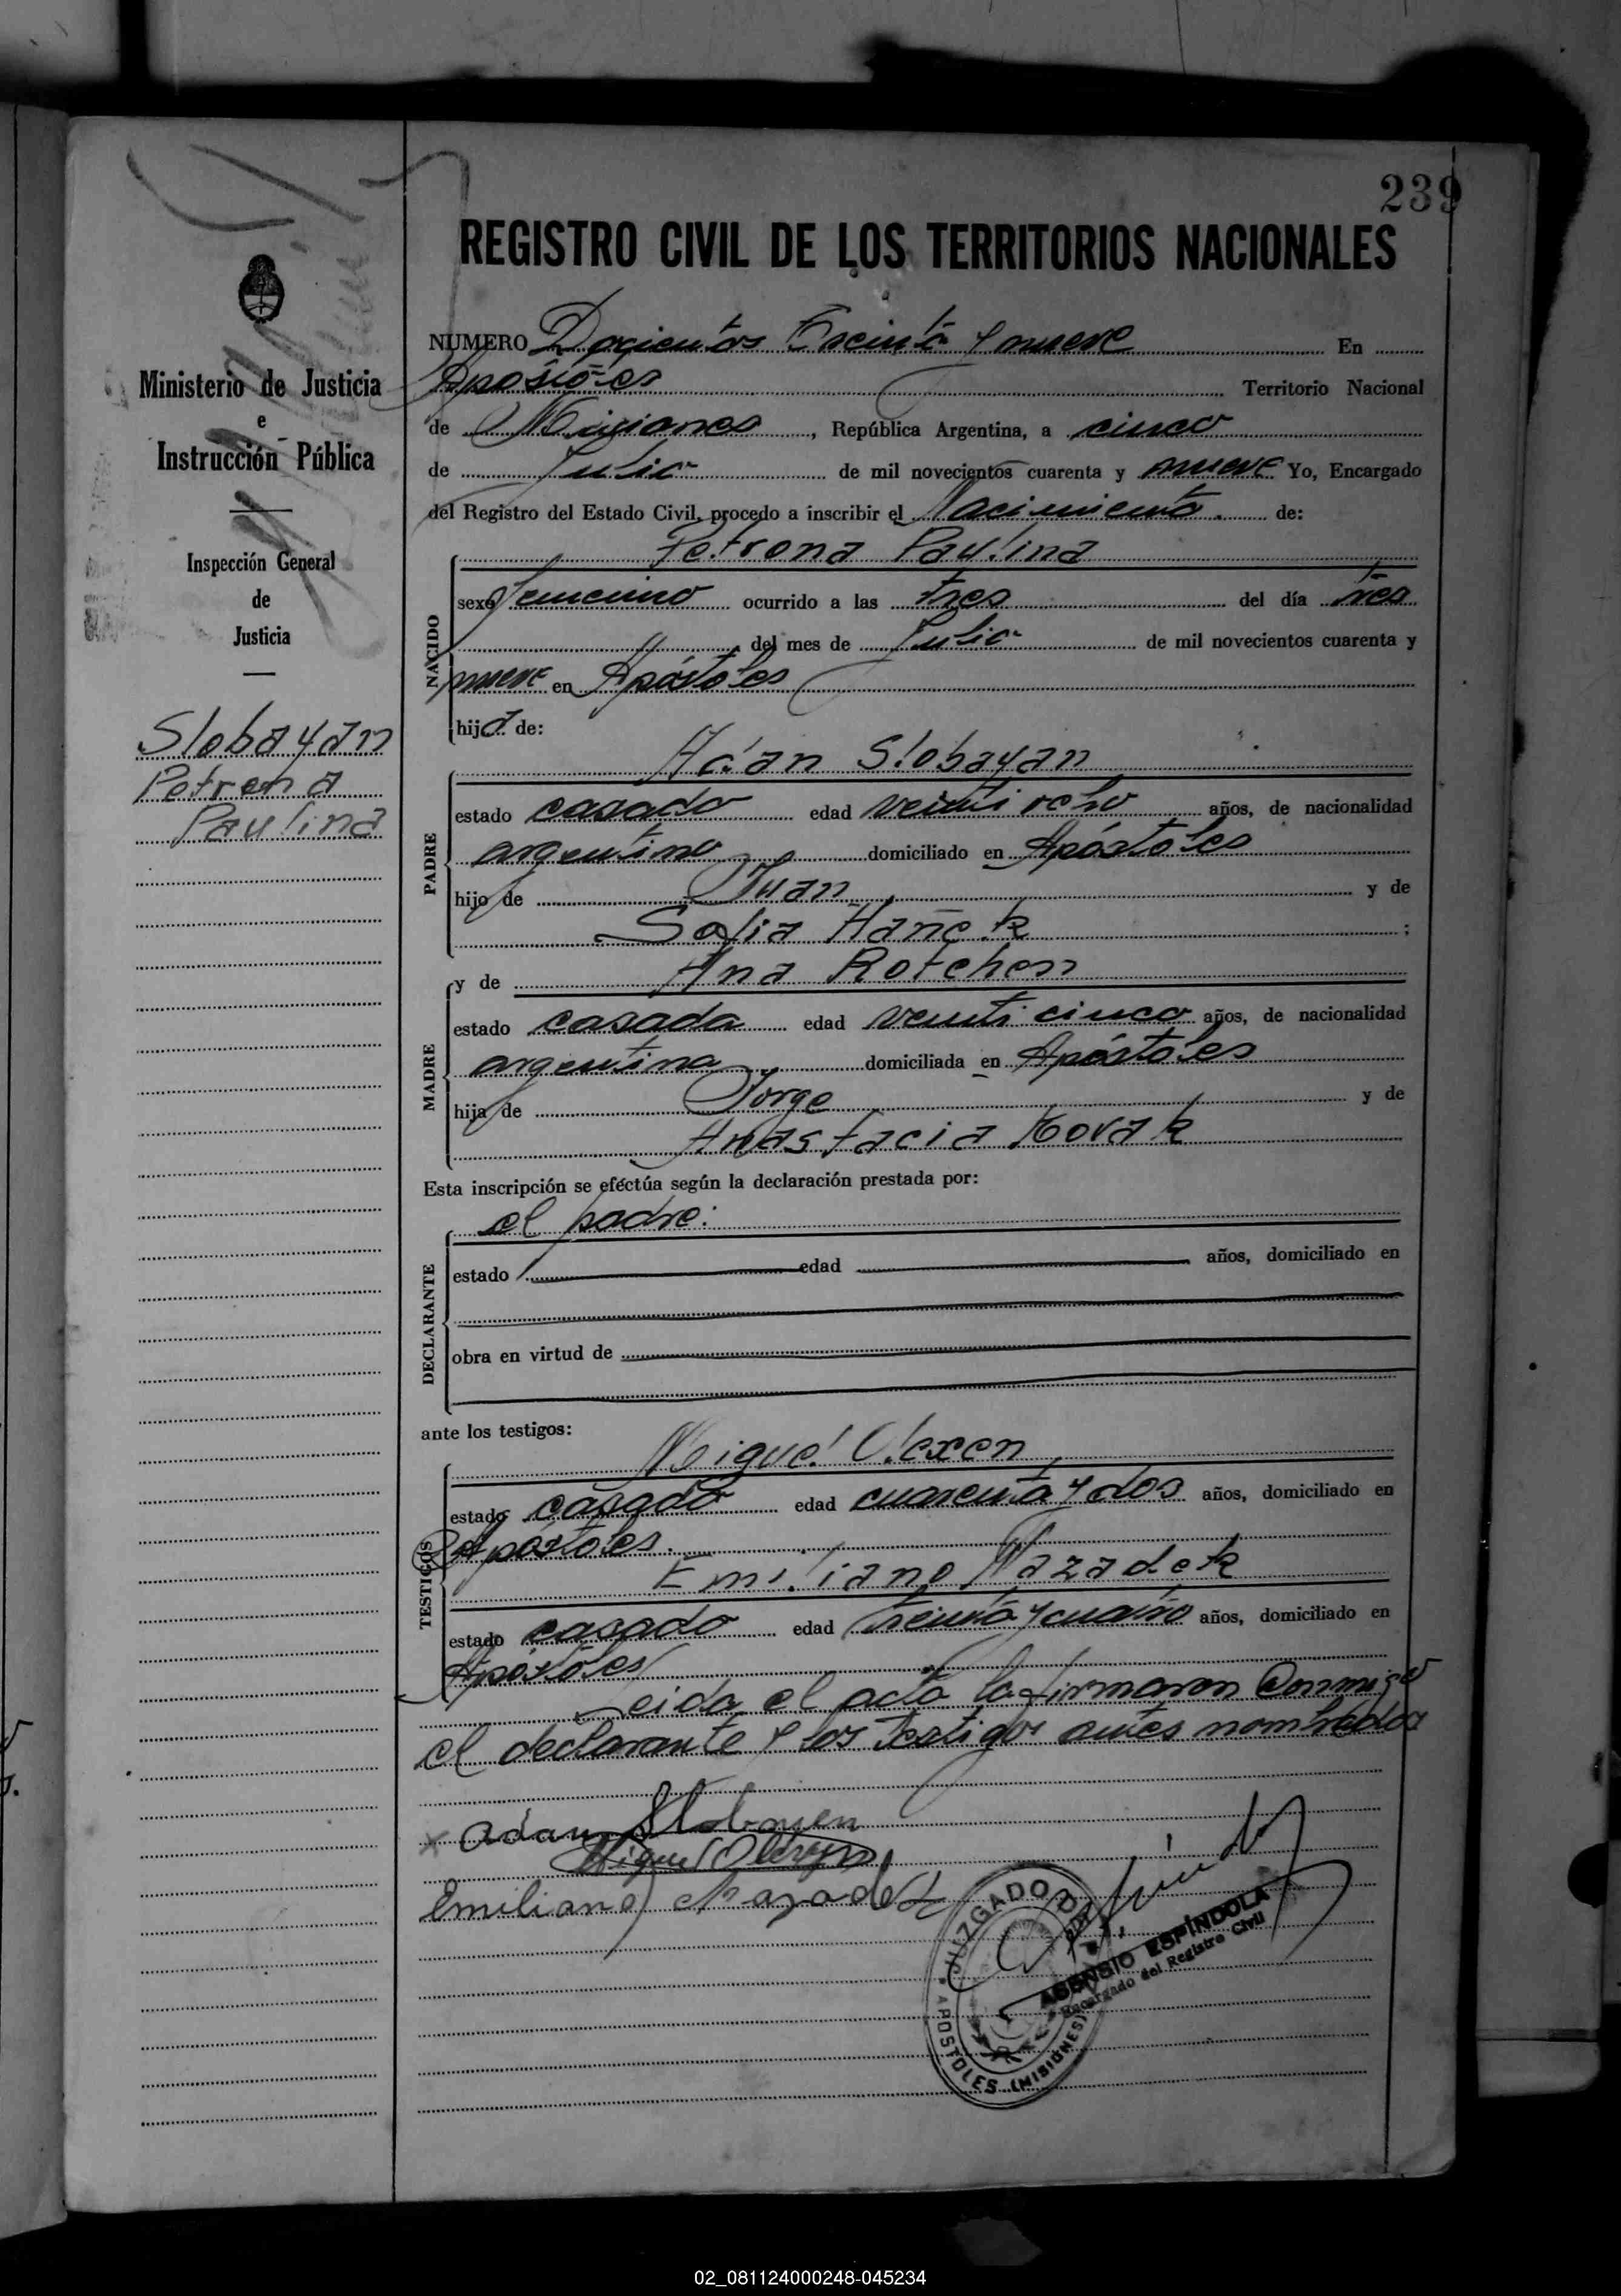 239
REGISTRO CIVIL DE LOS TERRITORIOS NACIONALES
Ministerio de Justicia
e
Instrucción Pública
Inspección General
de
Justicia
Slobayan
Petrona
Paulina
NUMERO Docientos Treinta y nueve En
Apóstoles Territorio Nacional
de Misiones, República Argentina, a cinco
de Julio de mil novecientos cuarenta y nueve Yo, Encargado
del Registro del Estado Civil, procedo a inscribir el Nacimiento. de:
NACIDO
Petrona Paulina
sexo femenino ocurrido a las tres del día tres
del mes de Julio de mil novecientos cuarenta y
nueve en Apóstoles
hija de:
PADRE
Adán Slobayan
estado casado edad veinti ocho años, de nacionalidad
argentino domiciliado en Apóstoles
hijo de Juan y de
Sofia Hañek;
MADRE
y de Ana Rotchen
estado casada edad veinti cinco años, de nacionalidad
argentina domiciliada en Apóstoles
hija de Jorge y de
Anastacia Kovak
Esta inscripción se efectúa según la declaración prestada por:
DECLARANTE
el padre:
estado edad años, domiciliado en
obra en virtud de
ante los testigos:
TESTIGOS
Miguel Olexen
estado casado edad cuarenta y dos años, domiciliado en
Apóstoles.
Emiliano Mazadek
estado casado edad treinta y cuatro años, domiciliado en
Apóstoles
Leida el acta la firmaron Conmigo
el declarante y los testigos antes nombrados
Adan Slobayen
Miguel
Emiliano
JUZGADO DE PAZ
APOSTOLES (MISIONES)
ASENSIO ESPÍNDOLA
Encargado del Registro Civil
02_081124000248-045234